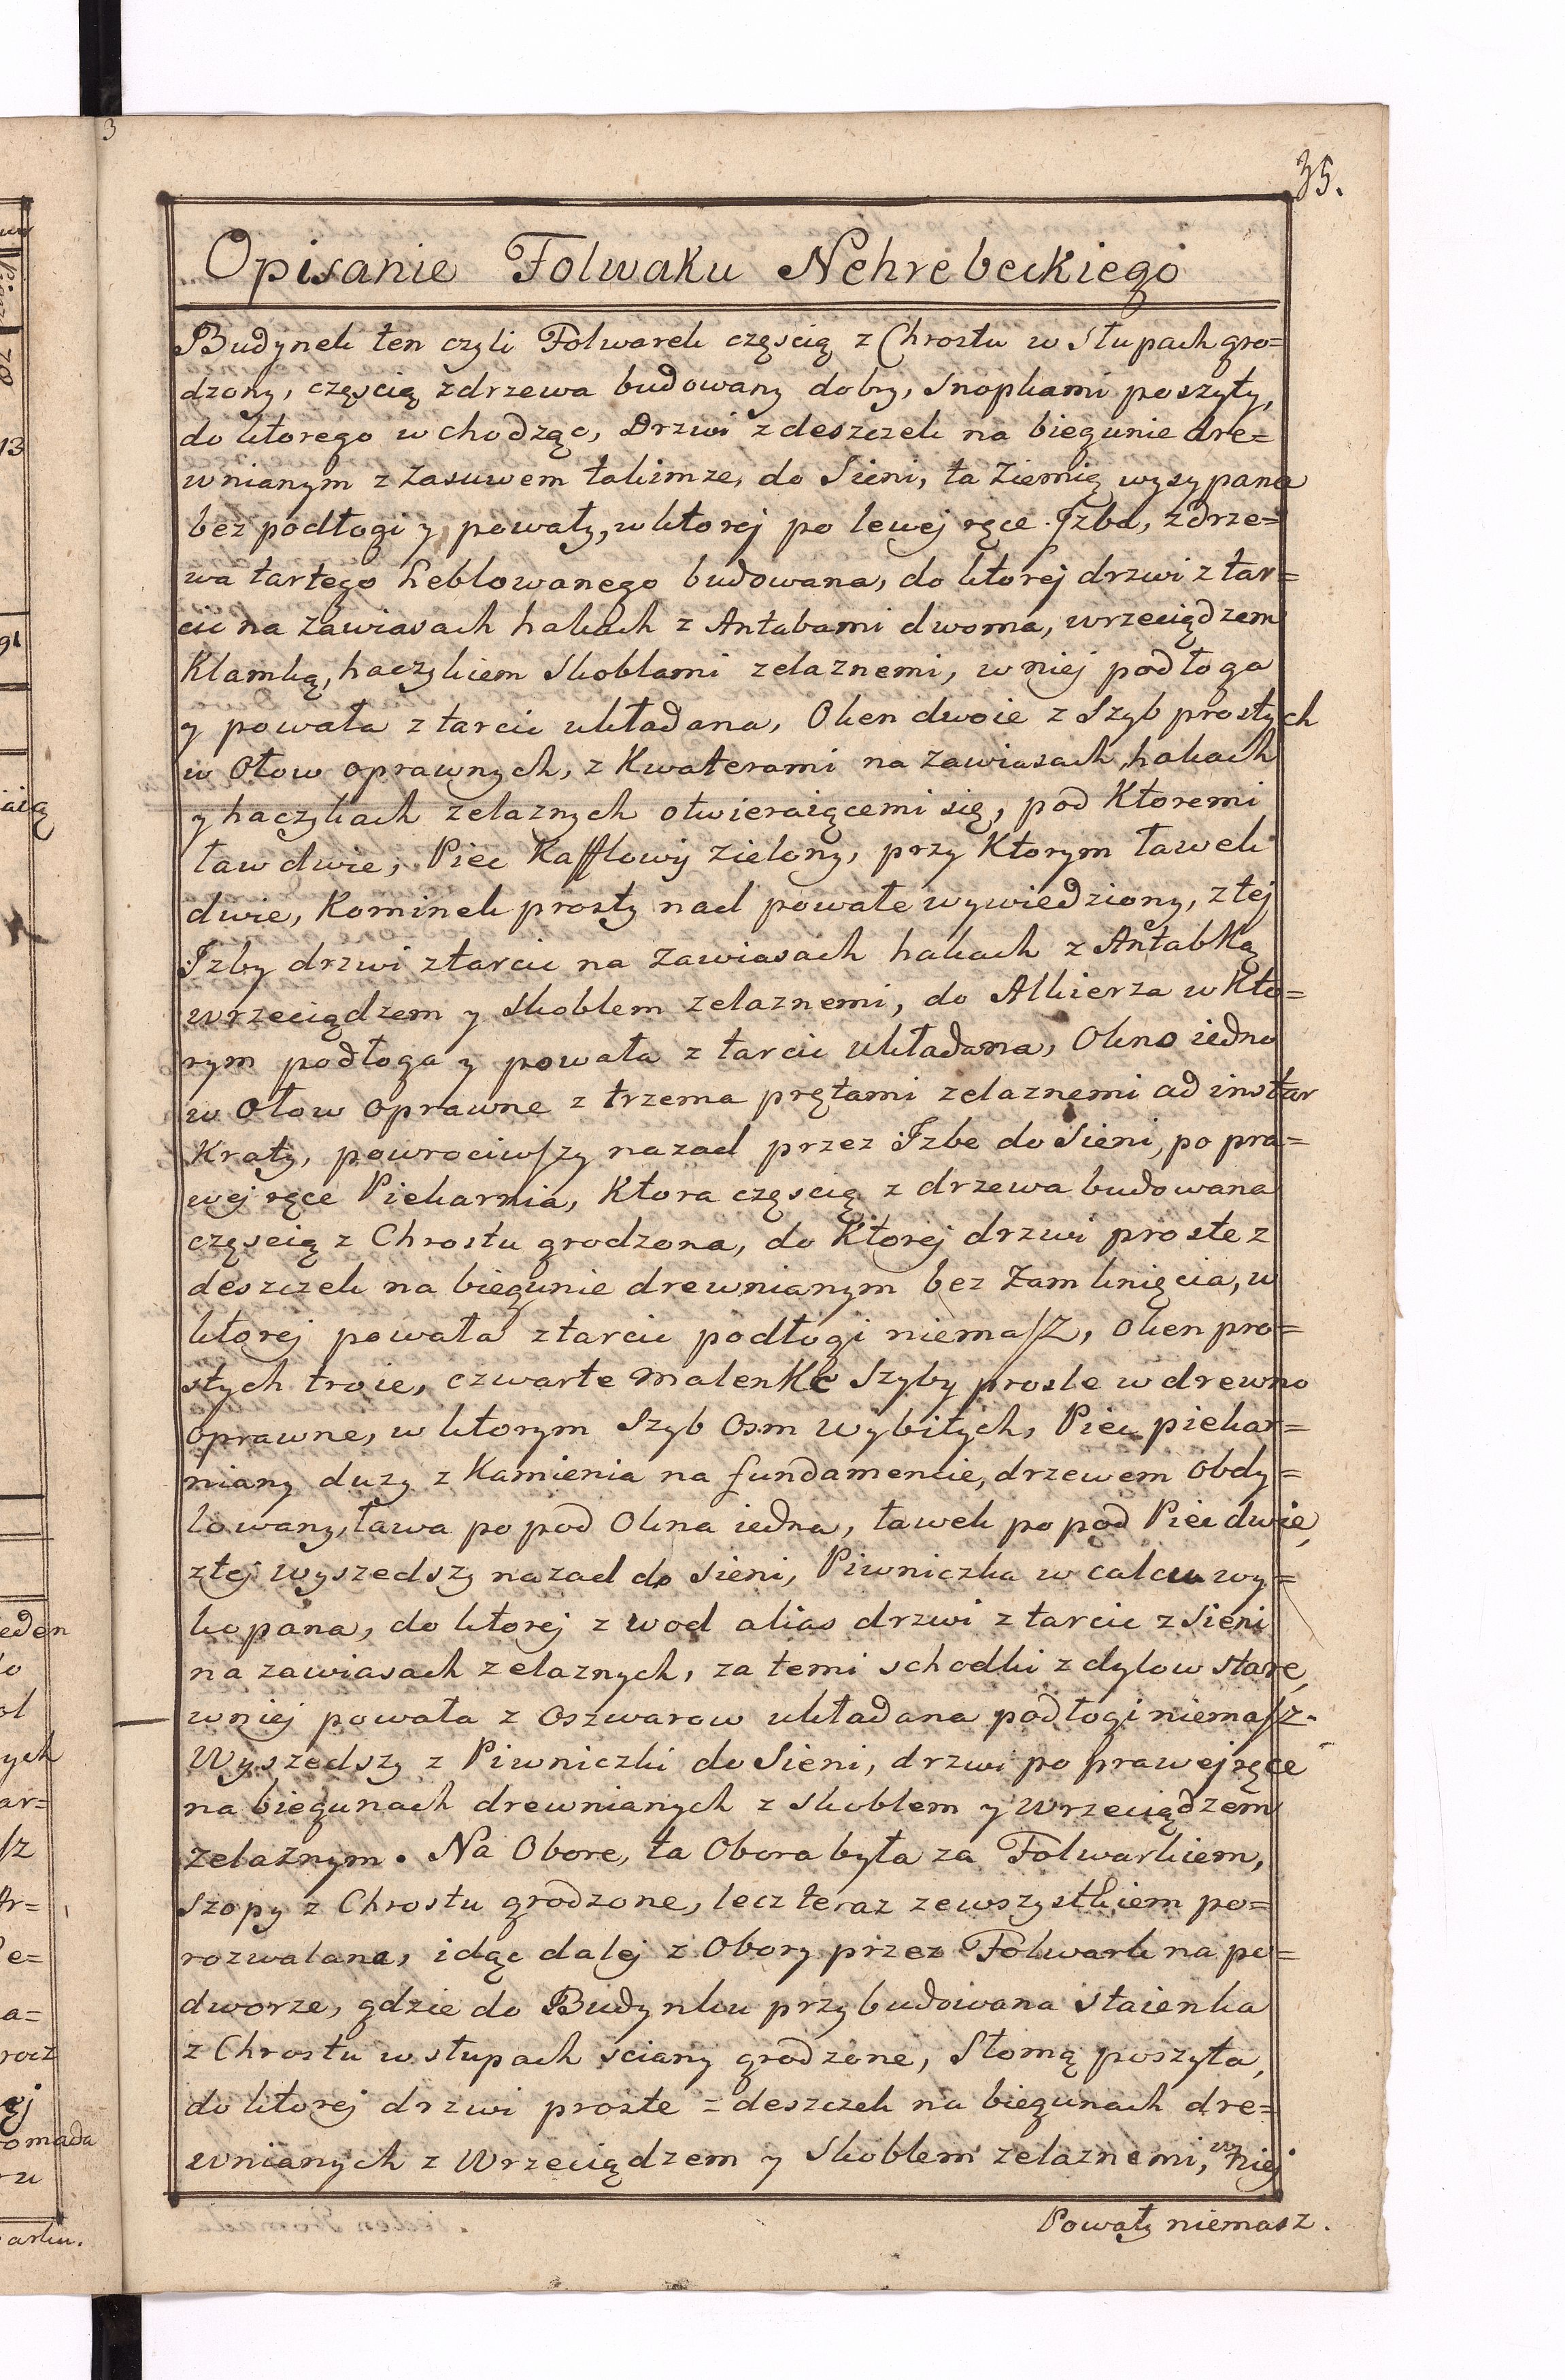 35.
Opisanie Folwaku Nehrebeckiego
Budynek ten czyli Folwarek częscią z Chrostu w Słupach gro=
dzony, częscią z drzewa budowany dobry, Snopkami poszyty,
do ktorego wchodząc, Drzwi z deszczek na biegunie dre=
wnianym z Zasuwem takimze, do Sieni, ta Ziemią wysypana
bez podłogi y powały, w ktorej po lewej ręce Izba, z drze=
wa tartego heblowanego budowana, do ktorej drzwi z tar=
cic na zawiasach hakach z Antabami dwoma, wrzeciądzem
Klamką, haczykiem Skoblami zelaznemi, w niej podłoga
y powała z tarcic układana, Oken dwoie z Szyb prostych
w Ołow oprawnych, z Kwaterami na zawiasach, hakach
y haczykach zelaznych otwieraiącemi się, pod Ktoremi
ław dwie, Piec Kafflowy zielony, przy Ktorym ławek
dwie, Kominek prosty nad powałe wywiedziony, z tej
Izby drzwi z tarcic na zawiasach hakach z Antabką
wrzeciądzem y Skoblem zelaznemi, do Alkierza w Kto=
rym podłoga y powała z tarcic układana, Okno iedno
w Ołow oprawne z trzema prętami zelaznemi ad instar
Kraty, powrociwszy nazad przez Izbe do Sieni, po pra=
wej ręce Piekarnia, Ktora częscią z drzewa budowana
częscią z Chrostu grodzona, do Ktorej drzwi proste z
deszczek na biegunie drewnianym bez Zamknięcia, w
ktorej powała z tarcic podłogi niemasz, Oken pro=
stych troie, czwarte malenke Szyby proste w drewno
oprawne, w ktorym Szyb Osm wybitych, Piec piekar=
niany duzy z Kamienia na fundamencie, drzewem Obdy=
lowany, ława popod Okna iedna, ławek popod Piec dwie,
z tej wyszedszy nazad do Sieni, Piwniczka w calcu wy=
kopana, do ktorej z wod alias drzwi z tarcic z Sieni
na zawiasach zelaznych, za temi schodki z dylow stare,
w niej powała z Oszwarow układana podłogi niemasz.
Wyszedszy z Piwniczki do Sieni, drzwi po prawej ręce
na biegunach drewnianych z skoblem y Wrzeciądzem
Zelaznym. Na Obore, ta Obora była za Folwarkiem,
Szopy z Chrostu grodzone, lecz teraz zewszystkiem po=
rozwalana, idąc dalej z Obory przez Folwark na po=
dworze, gdzie do Budynku przybudowana Staienka
z Chrostu w słupach sciany grodzone, Słomą poszyta,
do ktorej drzwi proste z deszczek na biegunach dre=
wnianych z Wrzeciądzem y Skoblem zelaznemi, w niej
Powały niemasz.